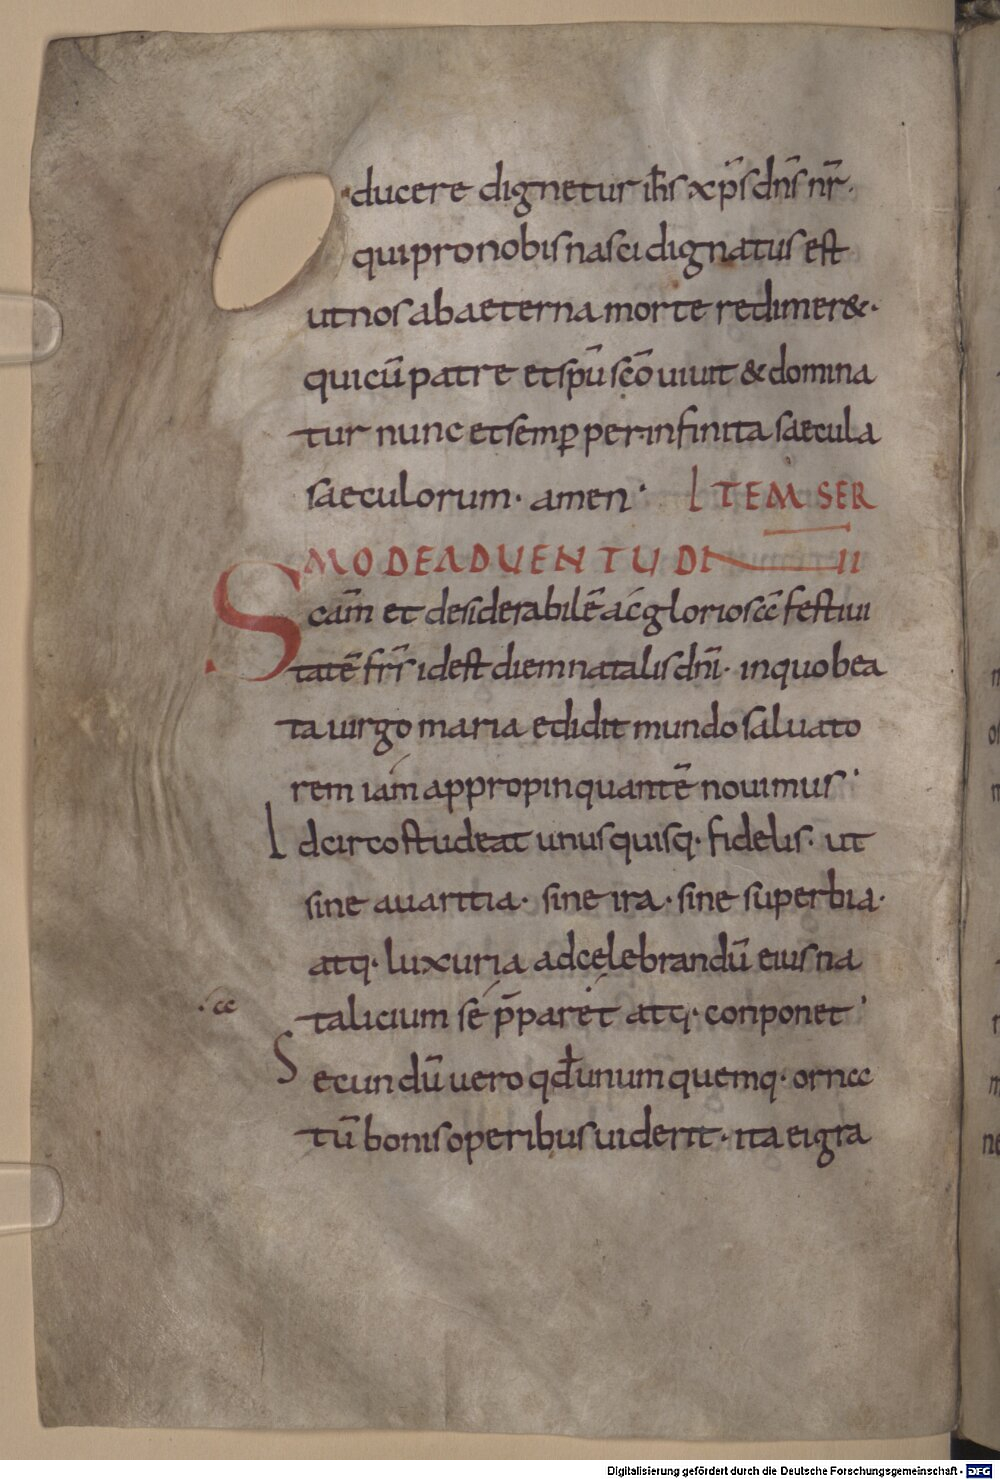 ducere dignetur ih̅s xp̅s dn̅s nr̅.
qui pro nobis nasci dignatus est
ut nos ab aeterna morte redimer&·
qui cū patre et sp̅u sc̅o uiuit & domina
tur nunc et semp̲ per infinita saecula
saeculorum· amen· ITEM SER
MO DE ADUENTU DNI II
Scam̅ et desiderabilē ac̅ gloriosa festiui
tatē fr̅s id est diem natalis dn̅i· in quo bea
ta uirgo maria edidit mundo saluato
rem iam appropinquantē nouimus·
Idcirco studeat unusquisq· fidelis· ut
sine auaritia· sine ira· sine superbia·
atq· luxuria ad celebrandū eius na
talicium se p̅paret atq· conponet·
Secundū uero qd̅ unumquemq· orna
tū bonis operibus uiderit· ita ei gra
Digitalisierung gefördert durch die Deutsche Forschungsgemeinschaft - DFG